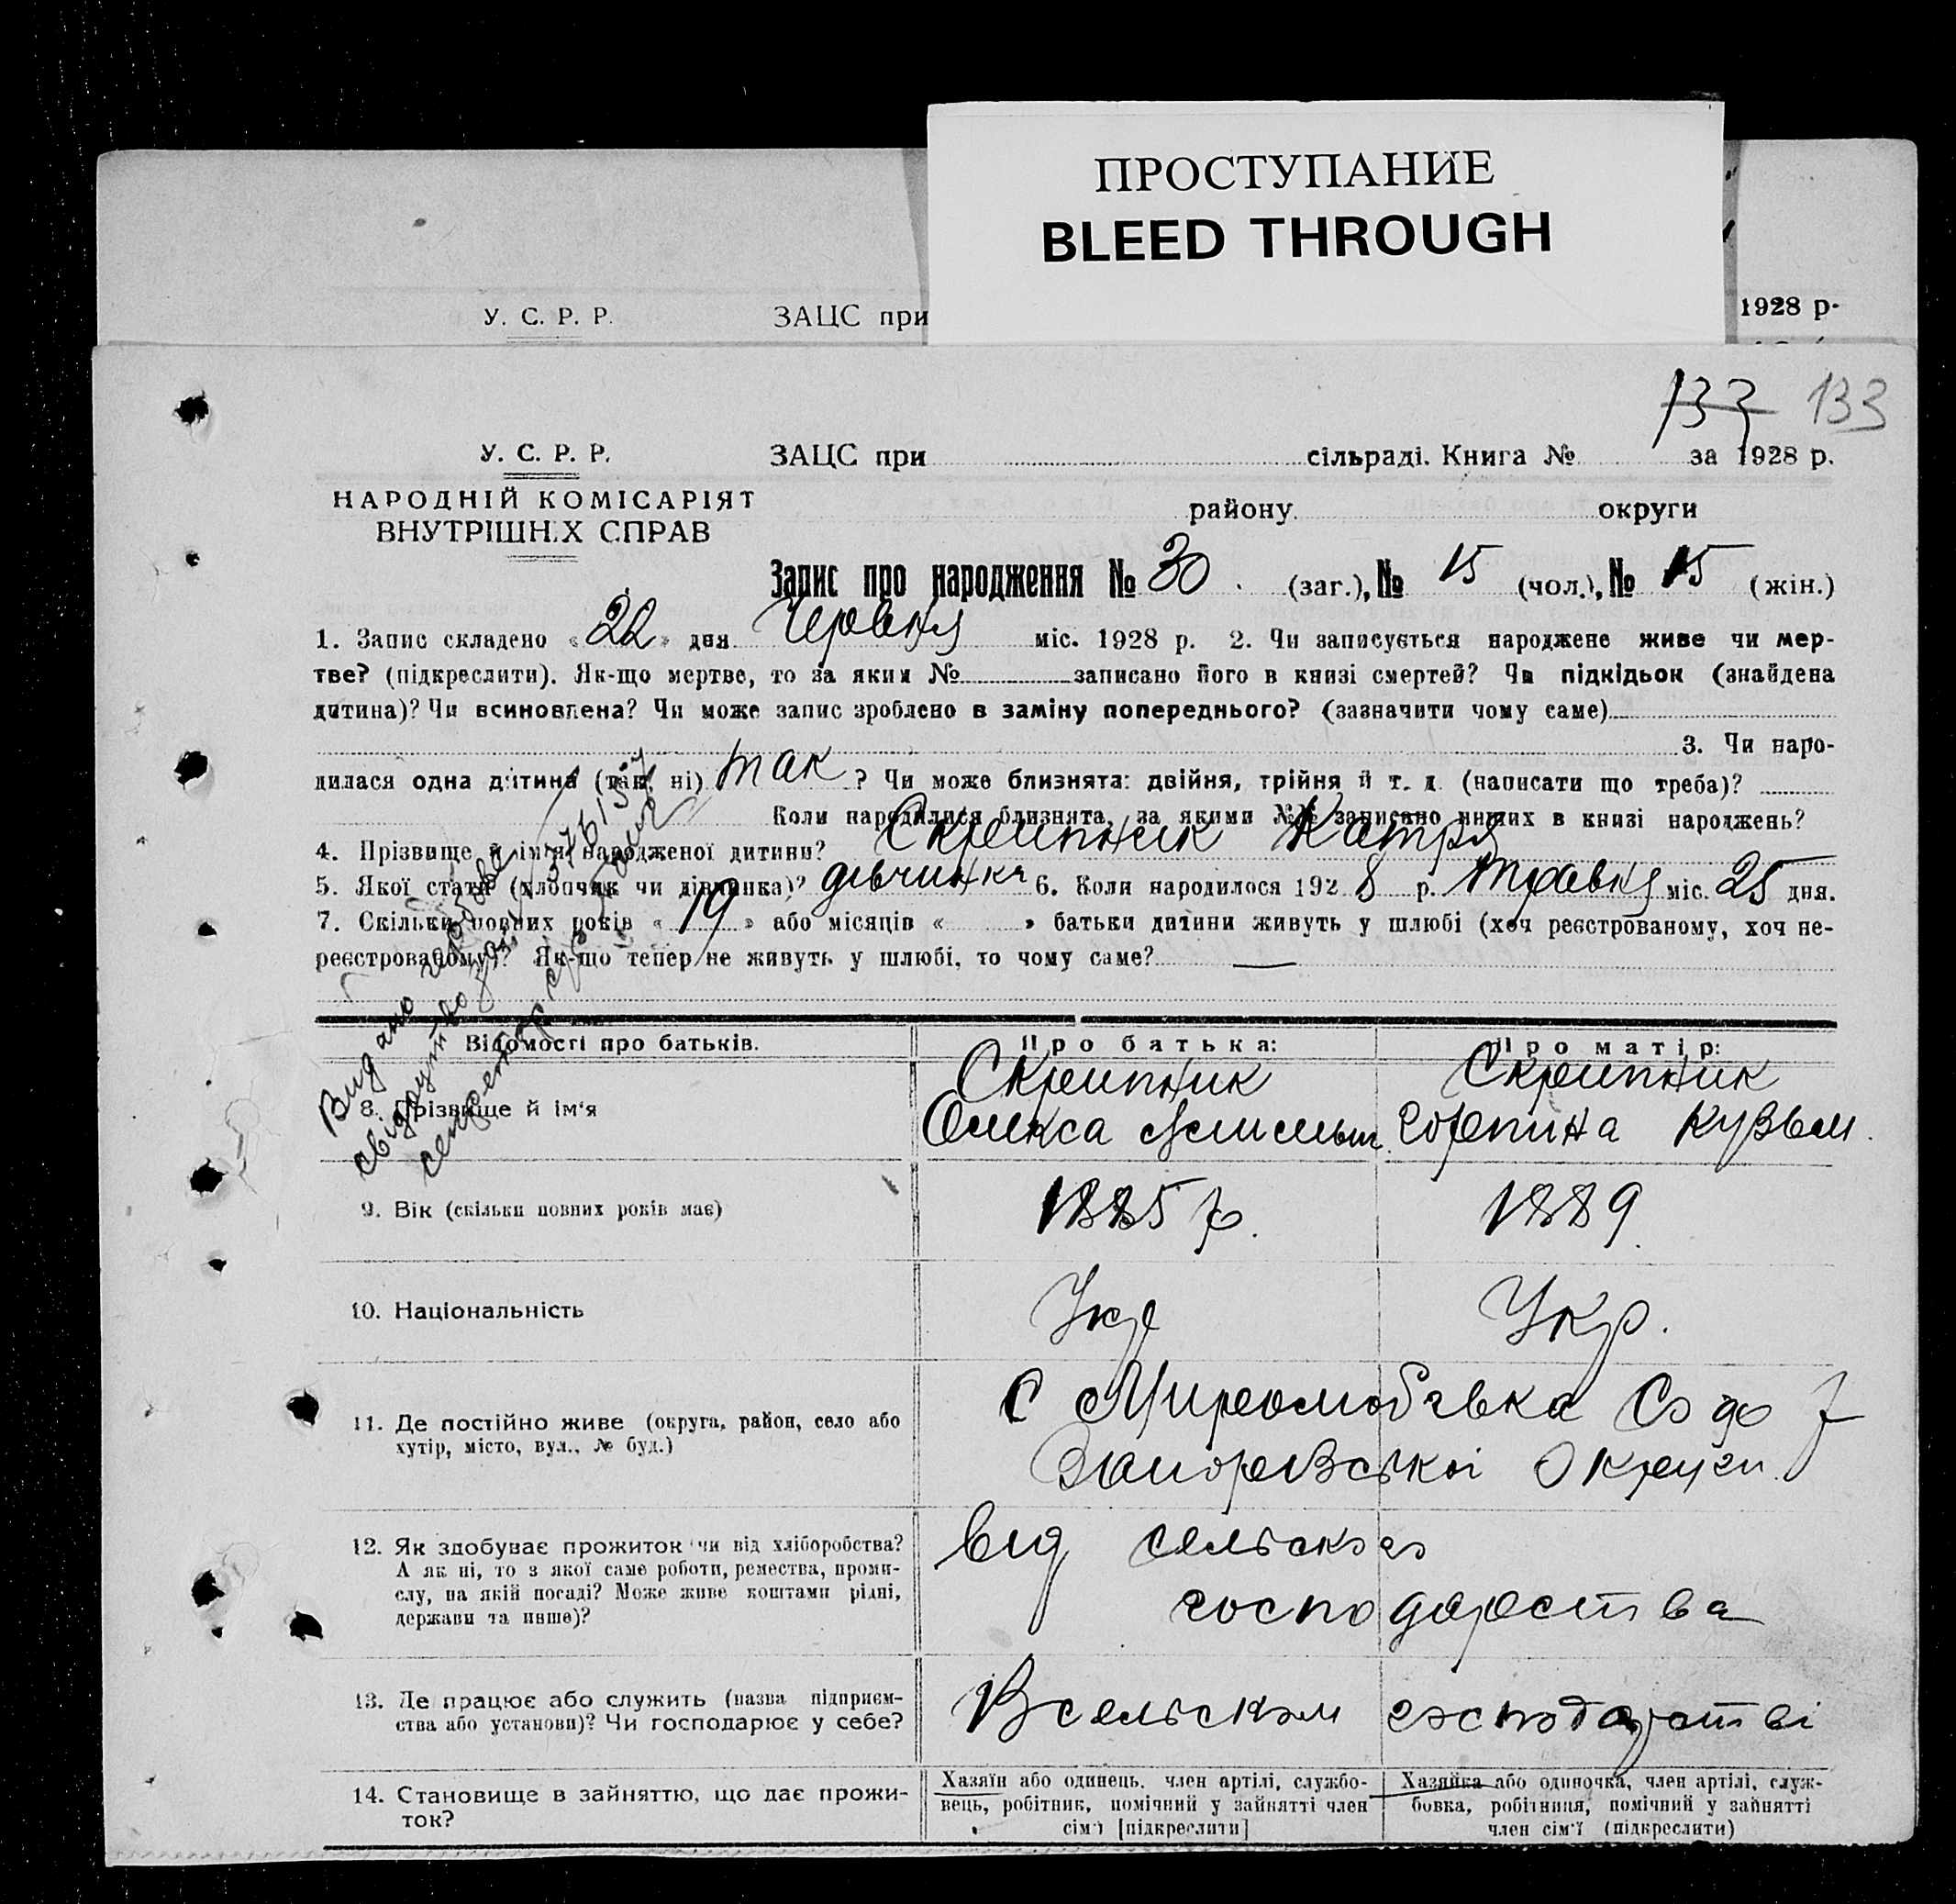 ПРОСТУПАНИЕ
BLEED THROUGH
У. С. Р. Р. ЗАЦС при 1928 р.
133 133
У. С. Р. Р. ЗАЦС при сільраді. Книга № за 1928 р.
НАРОДНІЙ КОМІСАРІЯТ району округи
ВНУТРІШНІХ СПРАВ
Запис про народження № 30. (заг.), № 15 (чол.), № 15 (жін.)
1. Запис складено «22» дня Червня міс. 1928 р. 2. Чи записується народжене живе чи мер-
тве? (підкреслити). Як-що мертве, то за яким № записано його в книзі смертей? Чи підкідьок (знайдена
дитина)? Чи всиновлена? Чи може запис зроблено в заміну попереднього? (зазначити чому саме)
3. Чи наро-
дилася одна дитина (так, ні) так ? Чи може близнята: двійня, трійня й т. д. (написати що треба)?
Коли народилися близнята, за якими №№ записано инших в книзі народжень?
4. Прізвище й ім'я народженої дитини? Скрипник Катря
5. Якої статі (хлопчик чи дівчинка)? дівчинка 6. Коли народилося 1928 р. Травня міс. 25 дня.
7. Скільки повних років «19» або місяців « » батьки дитини живуть у шлюбі (хоч реєстрованому, хоч не-
реєстрованому)? Як-що тепер не живуть у шлюбі, то чому саме? —
Видано
свідоцтво
Відомості про батьків. Про батька: Про матір:
8. Прізвище й ім'я Скрипник Скрипник
Олекса Горпина Кузьм.
9. Вік (скільки повних років має) 1885 р. 1889
10. Національність Укр Укр.
11. Де постійно живе (округа, район, село або
хутір, місто, вул., № буд.)
с
Округи
12. Як здобуває прожиток чи від хліборобства?
А як ні, то з якої саме роботи, ремества, проми-
слу, на якій посаді? Може живе коштами рідні,
держави та инше)?
від сельского
господарства
13. Де працює або служить (назва підприєм-
ства або установи)? Чи господарює у себе?
В сельском господарстві
14. Становище в зайняттю, що дає прожи-
ток?
Хазяїн або одинець, член артілі, службо-
вець, робітник, помічний у зайнятті член
сім'ї [підкреслити]
Хазяйка або одиночка, член артілі, служ-
бовка, робітниця, помічний у зайнятті
член сім'ї (підкреслити)